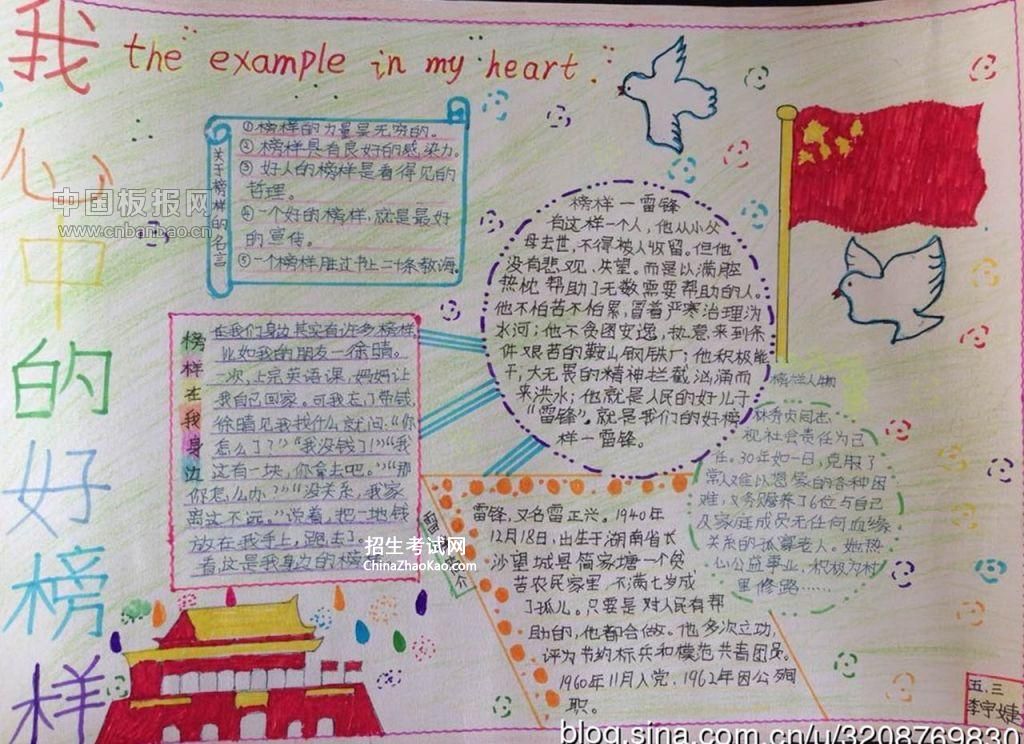 我心中的好榜样
the example in my heart
关于榜样的名言
①榜样的力量是无穷的。
②榜样具有良好的感染力。
③好人的榜样是看得见的
哲理。
④一个好的榜样,就是最好
的宣传。
⑤一个榜样胜过书上二十条教诲。
中国板报网
www.cnbanbao.cn
榜样一雷锋
有这样一个人,他从小父
母去世,不得被人收留。但他
没有悲观、失望。而是以满腔
热忱帮助了无数需要帮助的人。
他不怕苦不怕累,冒着严寒治理沩
水河;他不贪图安逸,执意来到条
件艰苦的鞍山钢铁厂;他积极能
干,大无畏的精神拦截汹涌而
来洪水;他就是人民的好儿子
“雷锋”。就是我们的好榜
样一雷锋。
榜样在我身边
在我们身边其实有许多榜样,
比如我的朋友一徐晴。
一次,上完英语课,妈妈让
我自己回家。可我忘了带钱,
徐晴见我找什么就问:“你
怎么了?”“我没钱了!”“我
这有一块,你拿去吧。”“那
你怎么办?”“没关系,我家
离这不远。”说着,把一地钱
放在我手上,跑去了。
看,这是我身边的榜
招生考试网
ChinaZhaoKao.com
榜样人物
林秀贞同志
视社会责任为己
任。30年如一日,克服了
常人难以想象的各种困
难,义务赡养了6位与自己
及家庭成员无任何血缘
关系的孤寡老人。她热
心公益事业,积极为村
里修路……
雷锋,又名雷正兴。1940年
12月18日,出生于湖南省长
沙望城县简家塘一个贫
苦农民家里,不满七岁成
了孤儿。只要是对人民有帮
助的,他都会做。他多次立功,
评为节约标兵和模范共青团员。
1960年11月入党,1962年因公殉
职。
五.三
李宇婕
blog.sina.com.cn/u/3208769830